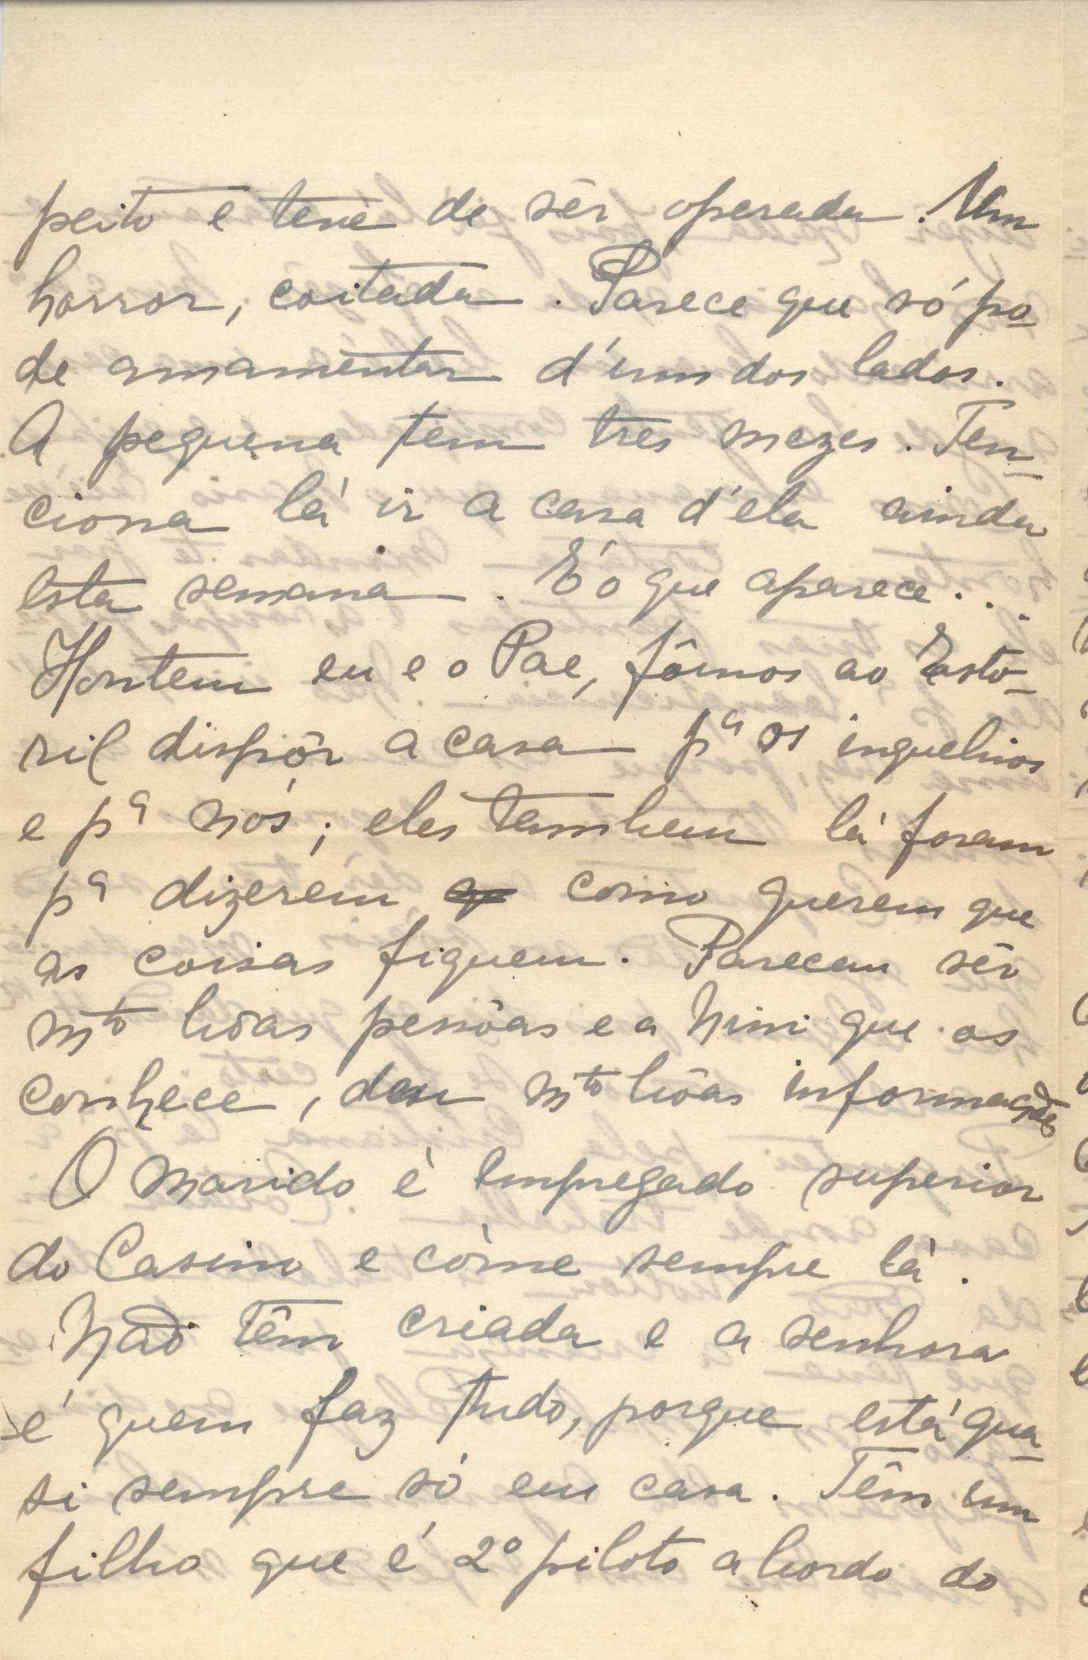 peito e teve de sêr operada. Um
horror, coitada. Parece que só po-
de amamentar d'um dos lados.
A pequena tem tres mezes. Ten-
ciona lá ir a casa d'ela ainda
esta semana. E' o que aparece...
Hontem eu e o Pae, fômos ao Esto-
ril dispôr a casa pª os inquelinos
e pª nós; eles tambem lá foram
pª dizerem como querem que
as coisas fiquem. Parecem sêr
mto bôas pessôas e a Mimi que os
conhece, deu mto bôas informações
O marido é empregado superior
do Casino e cóme sempre lá.
Não têm criada e a senhora
é quem faz tudo, porque está qua-
si sempre só em casa. Têm um
filho que é 2º piloto a bordo do